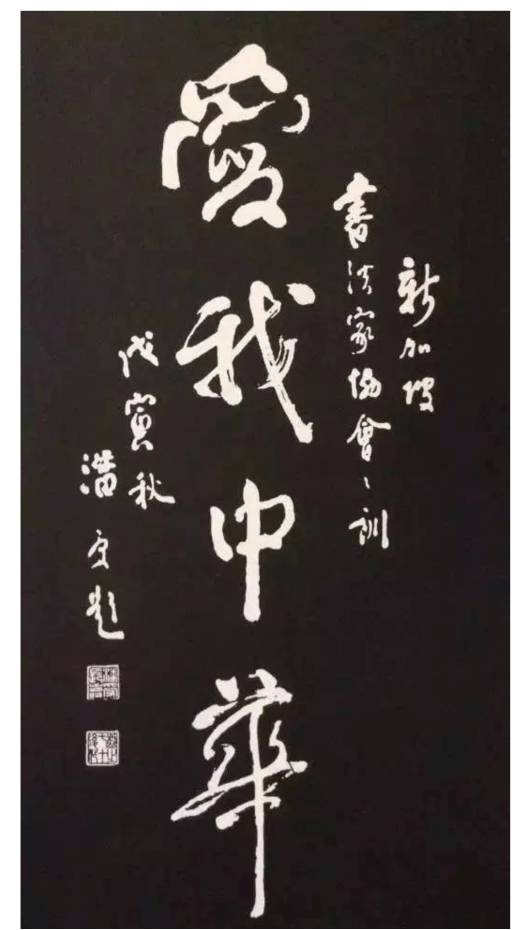 新加坡
書法家協會〻訓
愛我中華
戊寅秋
潘受題